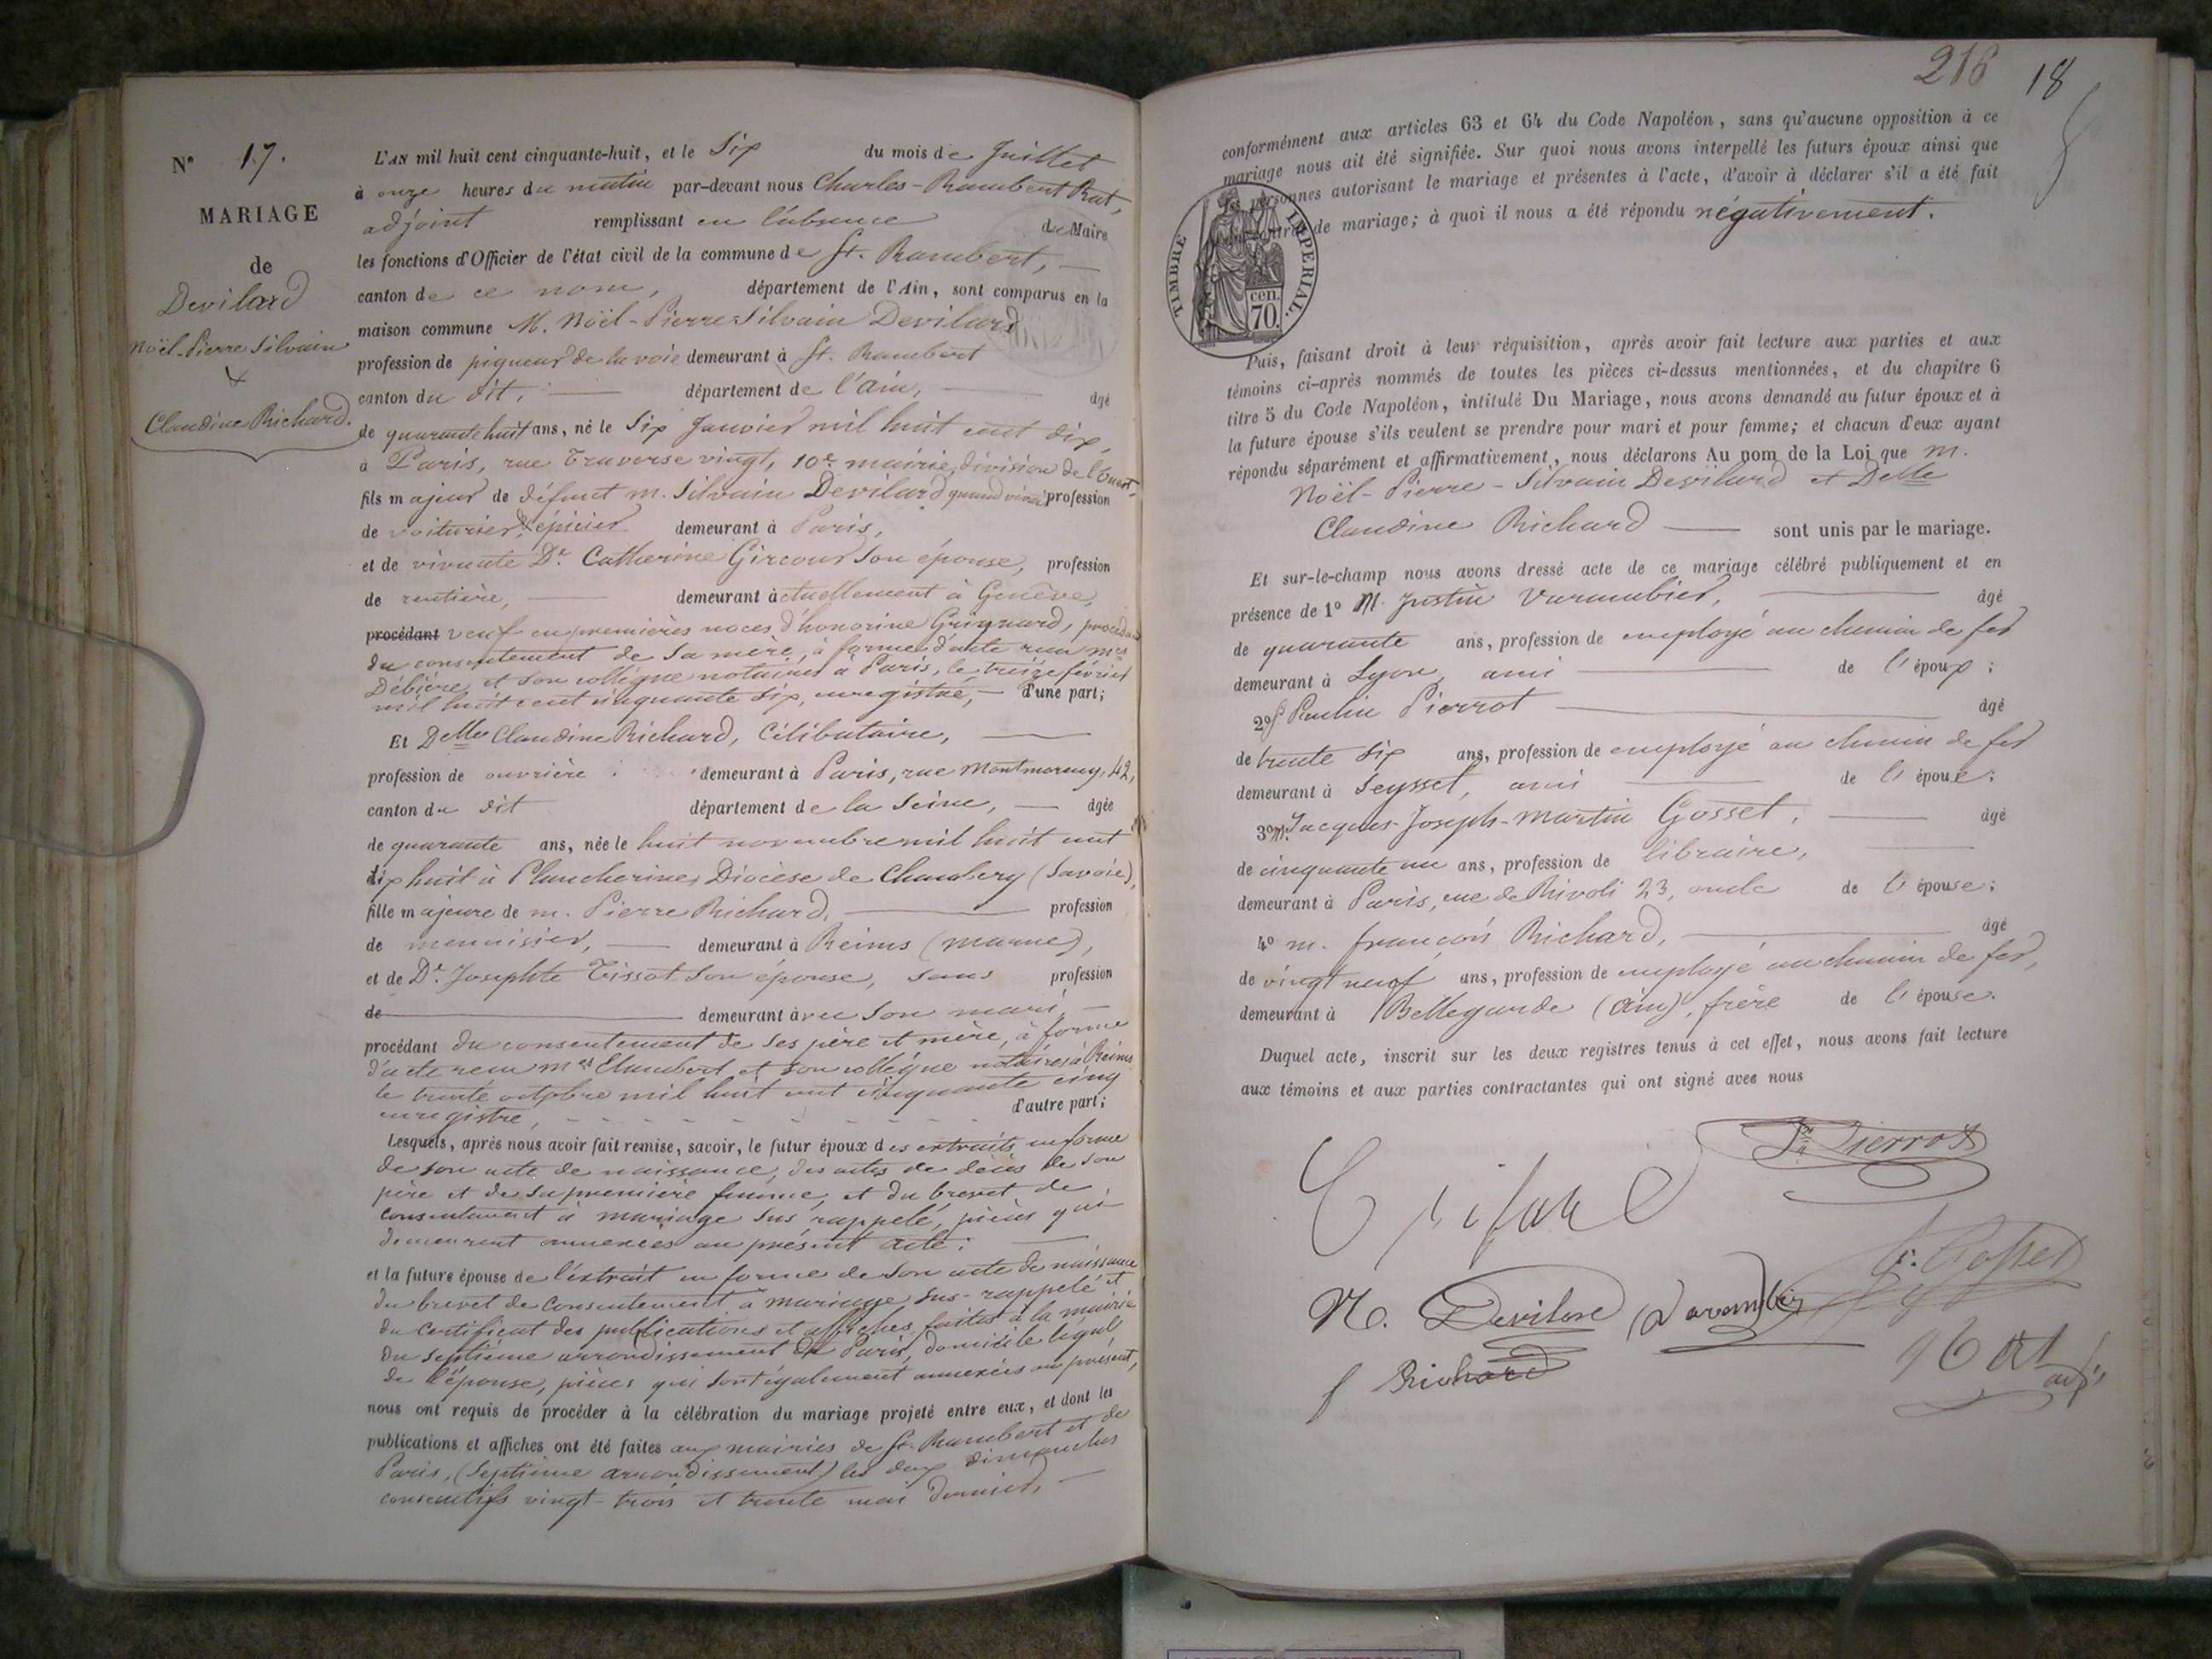 N° 17.
MARIAGE
de
Devilard
Noël-Pierre Silvain
&
Claudine Richard.
L'AN mil huit cent cinquante-huit, et le Six du mois de Juillet
à onze heures du matin par-devant nous Charles-Rambert Rat,
adjoint remplissant en l'absence du Maire
les fonctions d'Officier de l'état civil de la commune de St. Rambert,
canton de ce nom, département de l'Ain, sont comparus en la
maison commune M. Noël-Pierre Silvain Devilard
profession de piqueur de la voie demeurant à St. Rambert
canton du dit, département de l'ain, âgé
de quarante huit ans, né le Six Janvier mil huit cent dix,
à Paris, rue Traverse vingt, 10e mairie, division de l'Ouest,
fils majeur de défunt m. Silvain Devilard quand vivait profession
de voiturier & épicier demeurant à Paris,
et de vivante De. Catherine Gircour son épouse, profession
de rentière, demeurant actuellement à Genève,
procédant veuf en premières noces d'honorine Grignard, procédant
du consentement de sa mère, à forme d'acte reçu mes
Débière et son collègue notaires à Paris, le treize février
mil huit cent cinquante six, enregistré, d'une part;
Et Delle Claudine Richard, Célibataire,
profession de ouvrière demeurant à Paris, rue Montmorency, 42,
canton du dit département de la Seine, âgée
de quarante ans, née le huit novembre mil huit cent
dix huit à Plancherine, Diocèse de Chambery (Savoie),
fille majeure de m. Pierre Richard, profession
de menuisier, demeurant à Reims (marne),
et de De. Josephte Tissot son épouse, sans profession
de demeurant avec son mari,
procédant du consentement de ses père et mère, à forme
d'acte reçu mes et son collègue notaires à Reims
le trente octobre mil huit cent cinquante cinq
enregistré, d'autre part;
Lesquels, après nous avoir fait remise, savoir, le futur époux des extraits en forme
de son acte de naissance, des actes de décès de son
père et de sa première femme, et du brevet de
consentement à mariage sus rappelé, pièces qui
demeurent annexées au présent acte;
et la future épouse de l'extrait en forme de son acte de naissance
du brevet de consentement à mariage sus-rappelé et
du certificat des publications et affiches faites à la mairie
du septième arrondissement de Paris, domicile légal
de l'épouse, pièces qui sont également annexées au présent,
nous ont requis de procéder à la célébration du mariage projeté entre eux, et dont les
publications et affiches ont été faites aux mairies de St. Rambert et de
Paris, (Septième arrondissement) les deux dimanches
consécutifs vingt-trois et trente mai dernier,
216 18
conformément aux articles 63 et 64 du Code Napoléon, sans qu'aucune opposition à ce
mariage nous ait été signifiée. Sur quoi nous avons interpellé les futurs époux ainsi que
les personnes autorisant le mariage et présentes à l'acte, d'avoir à déclarer s'il a été fait
un contrat de mariage; à quoi il nous a été répondu négativement.
TIMBRE IMPÉRIAL.
70 cen.
Puis, faisant droit à leur réquisition, après avoir fait lecture aux parties et aux
témoins ci-après nommés de toutes les pièces ci-dessus mentionnées, et du chapitre 6
titre 5 du Code Napoléon, intitulé Du Mariage, nous avons demandé au futur époux et à
la future épouse s'ils veulent se prendre pour mari et pour femme; et chacun d'eux ayant
répondu séparément et affirmativement, nous déclarons Au nom de la Loi que m.
Noël-Pierre-Silvain Devilard et Delle
Claudine Richard sont unis par le mariage.
Et sur-le-champ nous avons dressé acte de ce mariage célébré publiquement et en
présence de 1° M. Justin Varambier, âgé
de quarante ans, profession de employé au chemin de fer
demeurant à Lyon, ami de l'époux;
2° Paulin Pierrot âgé
de trente six ans, profession de employé au chemin de fer
demeurant à Seyssel, ami de l'époux;
3° M. Jacques-Joseph-Martin Gosset, âgé
de cinquante un ans, profession de libraire,
demeurant à Paris, rue de Rivoli 23, oncle de l'épouse;
4° m. françois Richard, âgé
de vingt neuf ans, profession de employé au chemin de fer,
demeurant à Bellegarde (Ain), frère de l'épouse.
Duquel acte, inscrit sur les deux registres tenus à cet effet, nous avons fait lecture
aux témoins et aux parties contractantes qui ont signé avec nous
Pierrot
J. Gosset
N. Devilard Varambier
f Richard
Rat adj.